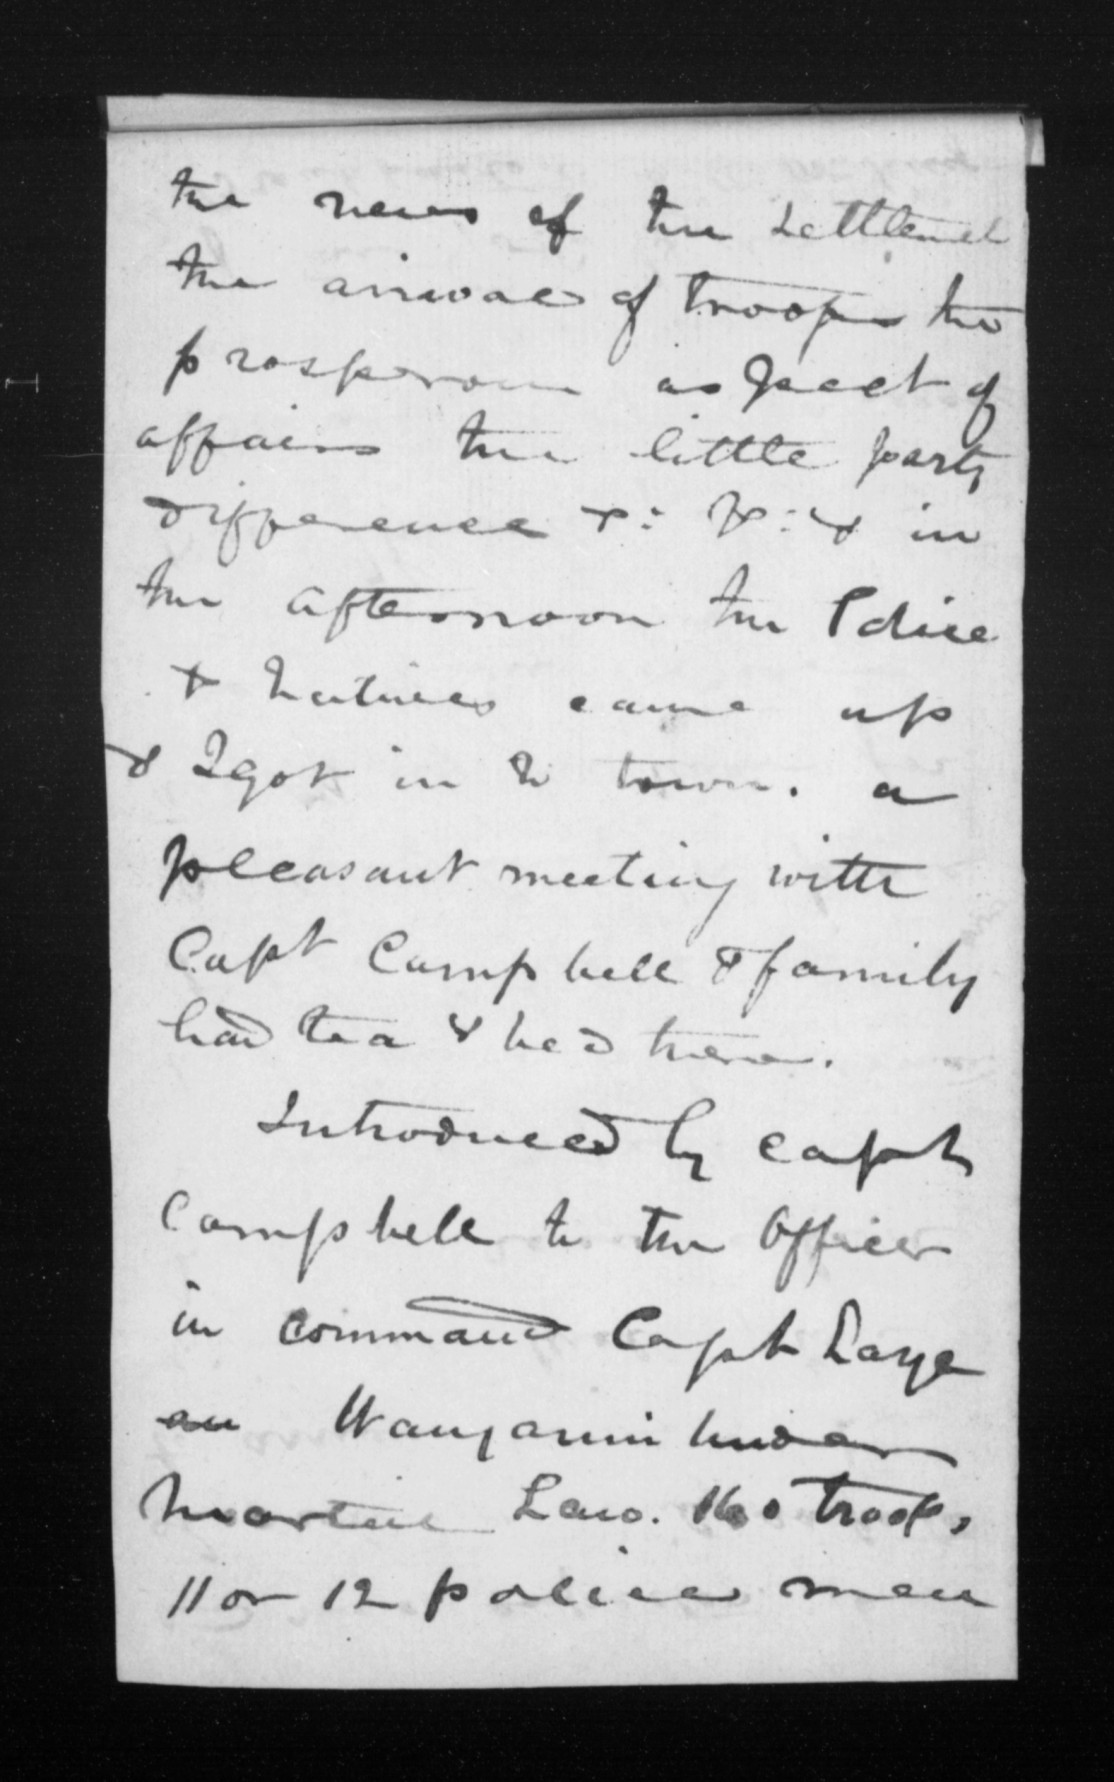 the news of the Settlement
the arrival of troops the
prosperous aspect of
affairs the little party
difference &: &: & in
the afternoon the Police
& Natives came up
& I got in to town. a
pleasant meeting with
Capt Campbell & family
had tea & bed there.
Introduced by Capt
Campbell to the Officer
in command Capt Laye
Wanganui under
Martial Law. 160 troops,
11 or 12 police men